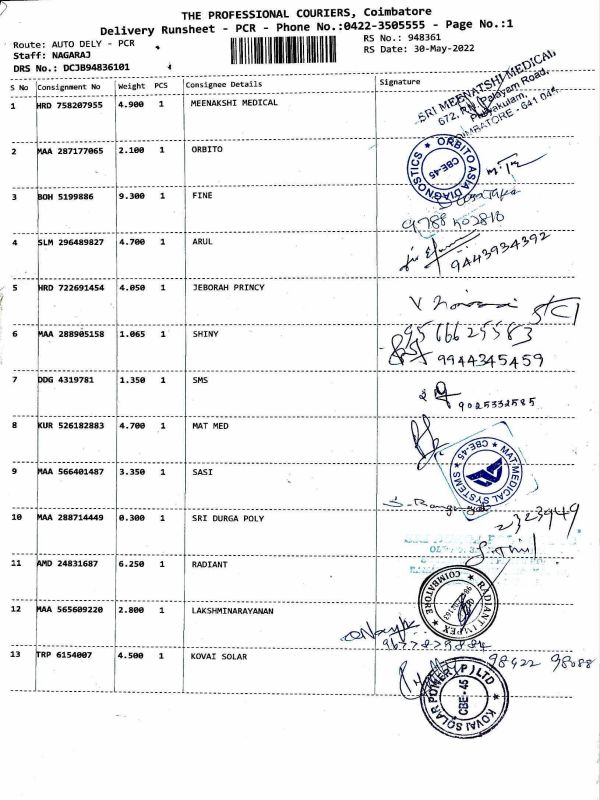 THE PROFESSIONAL COURIERS, Coimbatore
Delivery Runsheet - PCR - Phone No.:0422-3505555 - Page No.:1
Route: AUTO DELY - PCR
RS No.: 948361
Staff: NAGARAJ
RS Date: 30-May-2022
DRS No.: DCJB94836101
S No Consignment No Weight PCS Consignee Details Signature
1 HRD 758207955 4.900 1 MEENAKSHI MEDICAL
SRI MEENATSHI MEDICAL
672, Palayam Road,
COIMBATORE - 641 044
2 MAA 287177065 2.100 1 ORBITO
ORBITO ASIA DIAGNOSTICS CBE-45
3 BOH 5199886 9.300 1 FINE
4 SLM 296489827 4.700 1 ARUL
9443934392
5 HRD 722691454 4.050 1 JEBORAH PRINCY
6 MAA 288905158 1.065 1 SHINY
9566625583
9944345459
7 DDG 4319781 1.350 1 SMS
9025332585
8 KUR 526182883 4.700 1 MAT MED
MATMEDICAL SYSTEMS CBE-45
9 MAA 566401487 3.350 1 SASI
10 MAA 288714449 0.300 1 SRI DURGA POLY
2323949
11 AMD 24831687 6.250 1 RADIANT
RADIANT IMPEX COIMBATORE
12 MAA 565609220 2.800 1 LAKSHMINARAYANAN
13 TRP 6154007 4.500 1 KOVAI SOLAR
98422 98088
KOVAI SOLAR POWER (P) LTD CBE-45